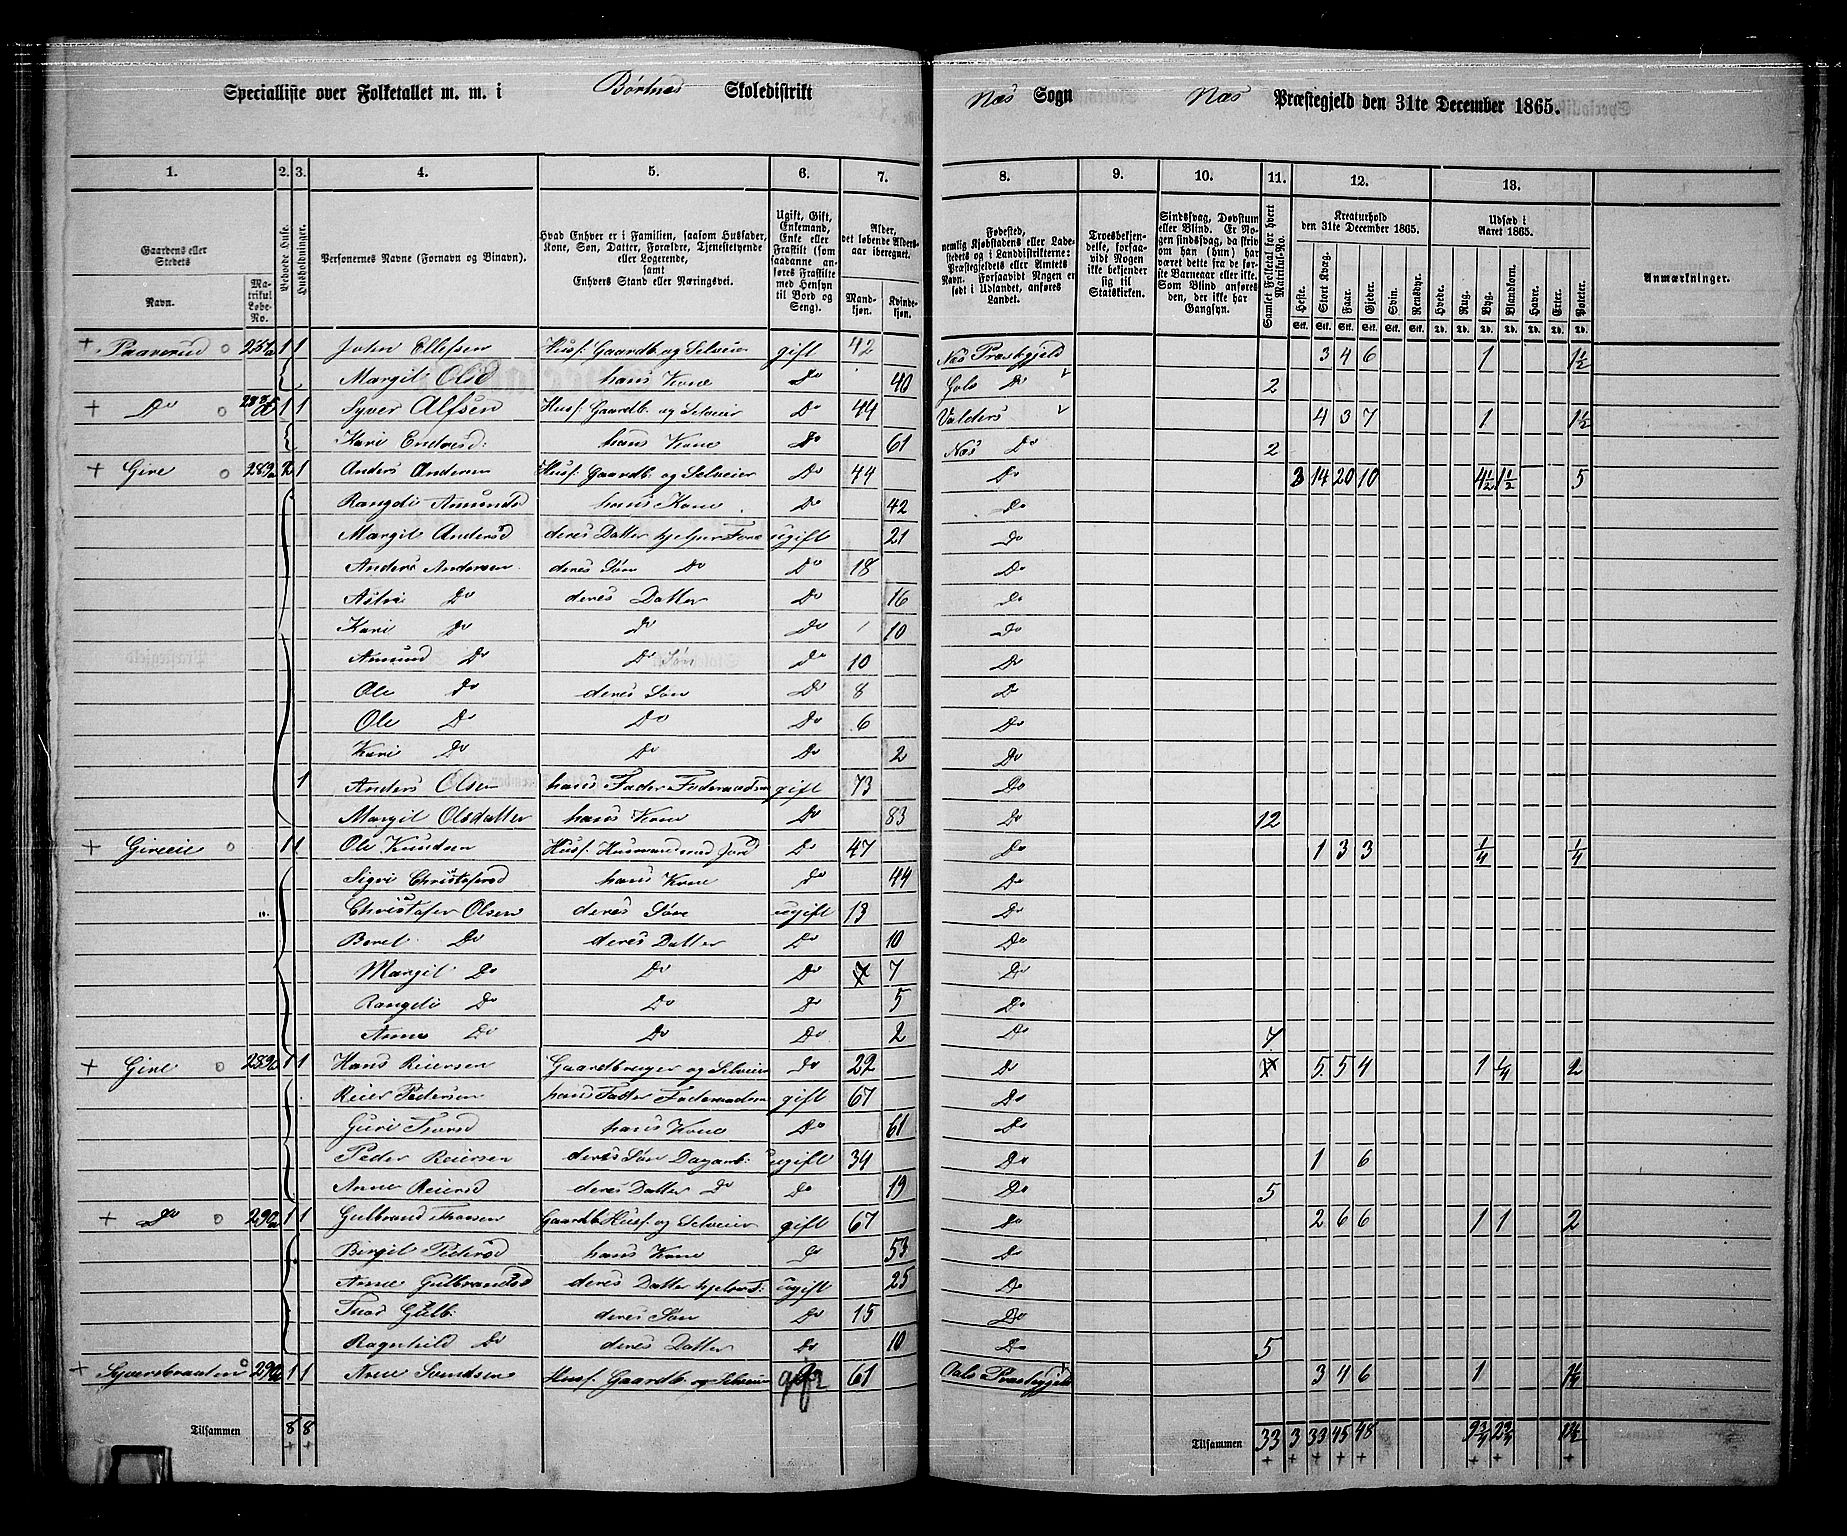 Specialliste over Folketallet m. m. i Børtnes Skoledistrikt Næs Sogn Næs Præstegjeld den 31te December 1865.
1. 2. 3. 4. 5. 6. 7. 8. 9. 10. 11. 12. 13.
Gaardens eller Stedets Navn. Matrikul Løbe-No. Beboede Huse. Husholdninger. Personernes Navne (Fornavn og Binavn). Hvad Enhver er i Familien, saasom Husfader, Kone, Søn, Datter, Forældre, Tjenestetyende eller Logerende, samt Enhvers Stand eller Næringsvei. Ugift, Gift, Enkemand, Enke eller Fraskilt (saadanne anføres Fraskilte med Hensyn til Bord og Seng). Alder, det løbende Aldersaar iberegnet. Mandkjøn. Kvindekjøn. Fødested, nemlig Kjøbstadens eller Ladestedets og i Landdistrikterne: Præstegjeldets eller Amtets Navn. Forsaavidt Nogen er født i Udlandet, anføres Landet. Troesbekjendelse, forsaavidt Nogen ikke bekjender sig til Statskirken. Sindssvag, Døvstum eller Blind. Samlet Folketal for hvert Matrikul-No. Kreaturhold den 31te December 1865. Heste. Stort Kvæg. Faar. Gjeder. Svin. Rensdyr. Udsæd i Aaret 1865. Hvede. Rug. Byg. Blandkorn. Havre. Erter. Poteter. Anmærkninger.
+ Paaverud 1 1 John Ellefsen Husf: Gaardb. og Selveier gift 42 Næs Præstgjeld 3 4 6 1 1½
Margit Olsd hans Kone Do 40 Gols Do 2
+ Do 1 1 Syver Alfsen Husf: Gaardb. og Selveier Do 44 Valders 4 3 7 1 1½
Kari Endresd: hans Kone Do 61 Næs Do 2
+ Give 283a 2 1 Anders Andersen Husf: Gaardb. og Selveier Do 44 Do 3 14 20 10 4½ 1½ 5
Rangdi Amunds hans Kone Do 42 Do
Margit Andersd deres Datter hjelper Fore ugift 21 Do
Anders Andersen deres Søn Do Do 18 Do
Astri Do deres Datter Do 16 Do
Kari Do Do Do 10 Do
Amund Do Do Søn Do 10 Do
Ole Do deres Søn Do 8 Do
Ole Do Do Do 6 Do
Kari Do Do Do 2 Do
1 Anders Olsen hans Fader Føderaadsm gift 73 Do
Margit Olsdatter hans Kone Do 83 Do 12
+ Giveeie 1 1 Ole Knudsen Husf: Husmand med Jord Do 47 Do 1 3 3 ¼ ¼
Sigri Christofersd hans Kone Do 44 Do
Christofer Olsen deres Søn ugift 13 Do
Beret Do deres Datter Do 10 Do
Margit Do Do Do 7 Do
Rangdi Do Do Do 5 Do
Anne Do Do Do 2 Do 7
+ Give 1 1 Hans Reiersen Gaardbruger og Selveier Do 22 Do 5 5 4 1 ¼ 2
Reier Pedersen hans Fatter Føderaadsm gift 67 Do
Guri Thorsd hans Kone Do 61 Do
Peder Reiersen deres Søn Dagarb: ugift 34 Do 1 6
Anne Reiersd deres Datter Do Do 19 Do 5
+ Do 290a 1 1 Gulbrand Gaardb. Husf: og Selveier gift 67 Do 2 6 6 1 1 2
Birgit Pedersd hans Kone Do 53 Do
Anne Gulbrandsd deres Datter ugift 25 Do
Gulb: deres Søn Do 15 Do
Ragnhild Do deres Datter Do 10 Do 5
+ 1 1 Arne Husf: Gaardb. og Selveier gift 61 Aals Præstegjeld 3 4 6 1
Tilsammen 8 8 Tilsammen 33 3 33 45 48 9¾ 2¾